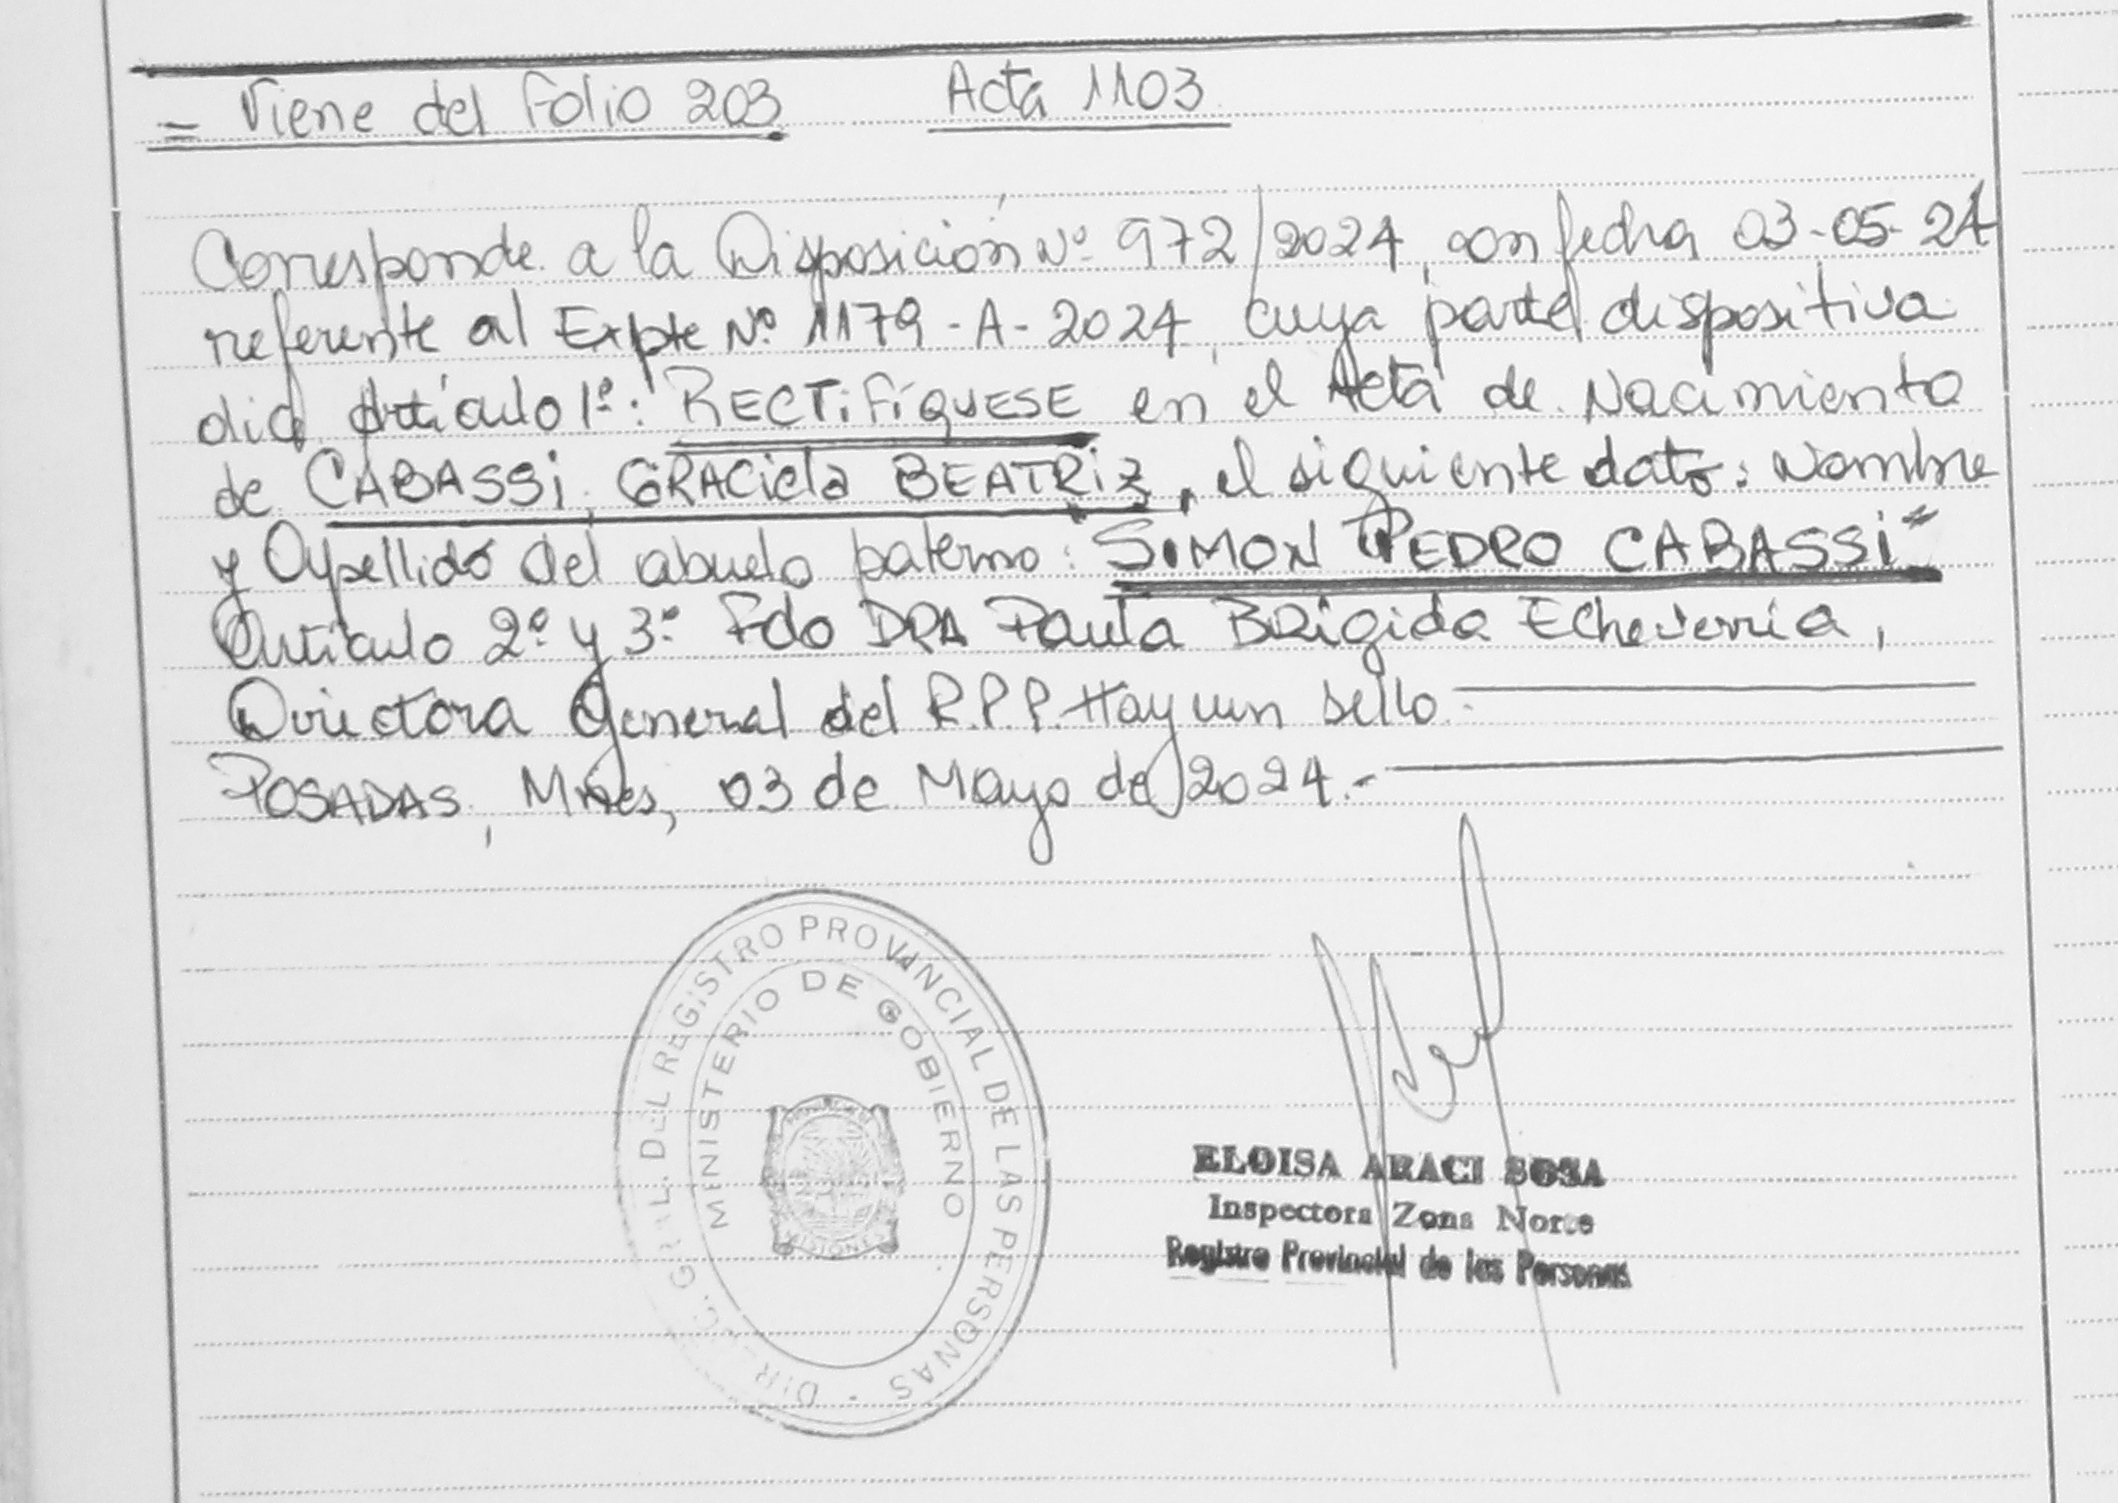 = Viene del Folio 203 Acta 1103
Corresponde a la Disposición Nº 972/2024, con fecha 03-05-24
referente al Expte Nº 1179-A-2024, cuya parte dispositiva
dice Artículo 1º: RECTIFÍQUESE en el Acta de Nacimiento
de CABASSI, GRACIELA BEATRIZ, el siguiente dato: Nombre
y Apellido del abuelo paterno: "SIMON PEDRO CABASSI"
Artículo 2º y 3º Fdo DRA Paula BRIGIDA Echeverria,
Directora General del R.P.P. Hay un sello.-
POSADAS, Mnes, 03 de Mayo de 2024.-
DIREC. GRAL. DEL REGISTRO PROVINCIAL DE LAS PERSONAS ·
MINISTERIO DE GOBIERNO
MISIONES
ELOISA ARACI SOSA
Inspectora Zona Norte
Registro Provincial de las Personas